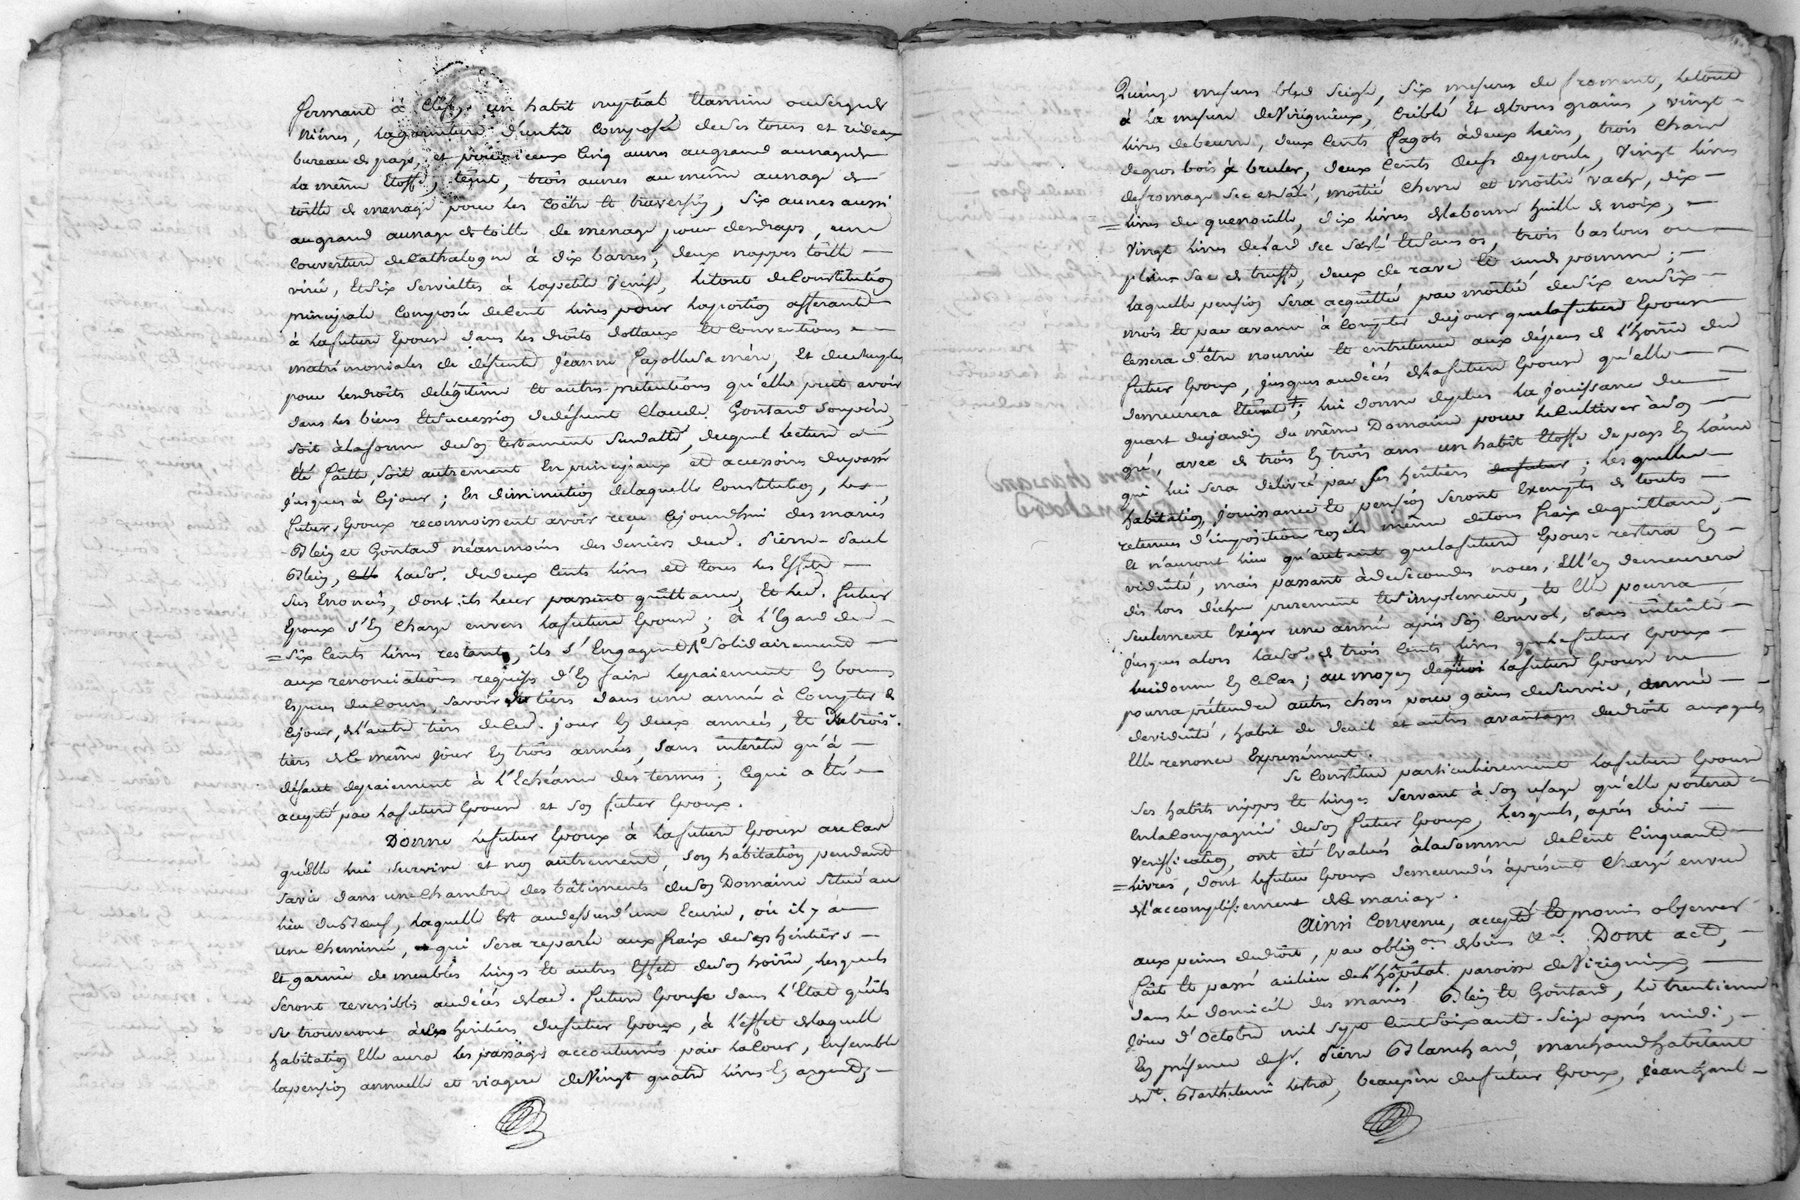 fermant à Clef, un habit nuptial Etamine ou Serge de
Nîmes, la garniture d'un lit Composée de ses tours et rideaux
bureau de pays, et pour iceux Cinq aunes au grand aunage de
la même Etoffe, teint, trois aunes au même aunage de
toille de menage pour les Coëtre et traversin, Six aunes aussi
au grand aunage de toille de menage pour des draps, une
Couverture de Cathalogne à dix barres, deux nappes toille
virée, Et Six Serviettes à la petite Venise, le tout de Constitution
principale Composée de Cent livres pour la portion afferante
à la future Epouse dans les droits dottaux et Conventions
matrimoniales de défunte Jeanne sa mère, Et du
pour les droits de légitime et autres prétentions qu'elle peut avoir
dans les biens Et Succession de défunt Claude Gontard son père,
soit à la forme de son testament Sus datté, duquel lecture a
Eté faitte, soit autrement En principaux et accessoires du passé
jusques à Ce jour; En diminution de laquelle Constitution, les
futurs Epoux reconnoissent avoir reçu Cejourd'hui des mariés
Blein et Gontard néanmoins des deniers dud. Pierre-Paul
Blein, la so. de deux Cents livres et tous les Effets
sus Enoncés, dont ils leur passent quittance, Et led. futur
Epoux s'En Charge envers la future Epouse; à l'Egard des
Six Cents livres restants, ils s'Engagent Solidairement
aux rénonciations requises d'En faire le paiement En bonnes
Espèces du Cours, Savoir un tiers dans une année à Compter de
Ce jour, et l'autre tiers de Ced. jour En deux années, Et le trois.
tiers de Ce même jour En trois années, Sans intérêts qu'à
défaut de paiement à l'Echéance des termes; Ce qui a Eté
accepté par la future Epouse et son futur Epoux.
Donne le futur Epoux à la future Epouse au Cas
qu'elle lui Survive et non autrement, son habitation pendant
sa vie dans une Chambre des bâtiments de son Domaine Situé au
lieu du Boeuf, laquelle Est au dessus d'une Ecurie, où il y a
une Cheminée, qui sera réparée aux fraix de ses héritiers
Et garnie de meubles linges Et autres Effets de son hoirie, lesquels
Seront reversibles au décès de lad. future Epouse dans l'Etat qu'ils
Se trouveront aux héritiers du futur Epoux, à l'effet de laquelle
habitation Elle aura les passages accoutumés par la Cour, Ensemble
la pension annuelle et viagère de Vingt quatre livres En argent,
Quinze mesures bled Seigle, Six mesures de froment, le tout
à la mesure de Virigneux, Criblé Et de bons grains, vingt
livres de beurre, deux Cents fagots à deux liens, trois Chars
de gros bois à bruler, deux Cents Oeufs de poule, Vingt livres
de fromage Sec et Salé, moitié Chevre et moitié Vache, dix
livres de quenouille, dix livres de la bonne huille de noix,
Vingt livres de lard Sec Salé Et Sans os, trois bastons ou
plein Sac de truffe, deux de rave Et un de pomme;
laquelle pension Sera acquittée par moitié de Six en Six
mois Et par avance à Compter du jour que la future Epouse
Cessera d'être nourrie Et entretenue aux dépens de l'hoirie du
futur Epoux, jusques au décès de la future Epouse qu'elle
demeurera Eteinte, lui donne de plus la jouissance du
quart du jardin du même Domaine pour le Cultiver à son
gré, avec de trois En trois ans un habit Etoffe de pays En laine
qui lui sera délivré par Ses héritiers; lesquelles
habitation, jouissance Et pension seront Exemptes de toutes
retenues d'imposition royale même de tous fraix de quittance,
Et n'auront lieu qu'autant que la future Epouse restera En
viduité, mais passant à de secondes noces, Ell'en demeurera
dès lors déchue purement Et simplement, Et Elle pourra
Seulement Exiger une année après Son Convol, Sans intérêts
jusques alors la so. de trois Cents livres que le futur Epoux
lui donne En Ce Cas; au moyen de quoi la future Epouse ne
pourra prétendre autre Chose pour gains de Survie, année
de viduité, habit de deuil et autres avantages de droit auxquels
Elle renonce Expressément.
Se Constitue particulièrement la future Epouse
Ses habits nippes Et linges Servant à Son usage qu'elle portera
En la Compagnie de Son futur Epoux, lesquels, après due
Vérification, ont été Evalués à la Somme de Cent Cinquante
livres, dont le futur Epoux demeure dès à présent Chargé envers
de l'accomplissement de Ce mariage.
Ainsi Convenu, accepté Et promis observer
aux peines de droit, par oblig.on de biens &c. Dont acte,
fait Et passé au lieu de l'hôpital paroisse de Virigneux
dans le domicile des mariés Blein Et Gontard, le trentieme
jour d'Octobre mil Sept Cent Soixante-Seize après midi,
En présence de Sr. Pierre Blanchard, marchand habitant
Barthelemi, beaupère du futur Epoux, Jean